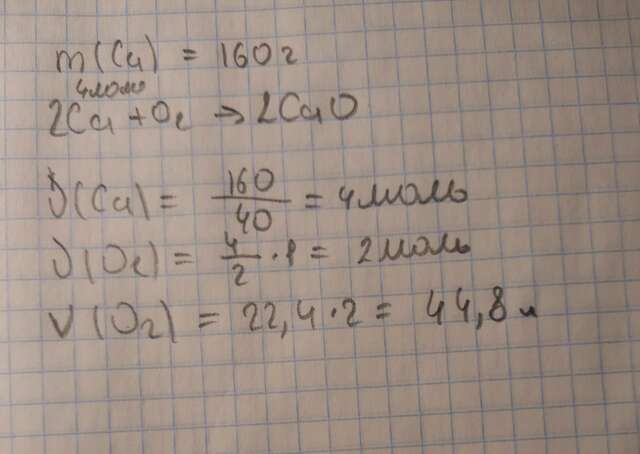 m(Ca) = 160 г
4моль
2Ca + O₂ → 2CaO
ν(Ca) = 160/40 = 4 моль
ν(O₂) = 4/2 · 1 = 2 моль
V(O₂) = 22,4 · 2 = 44,8 л